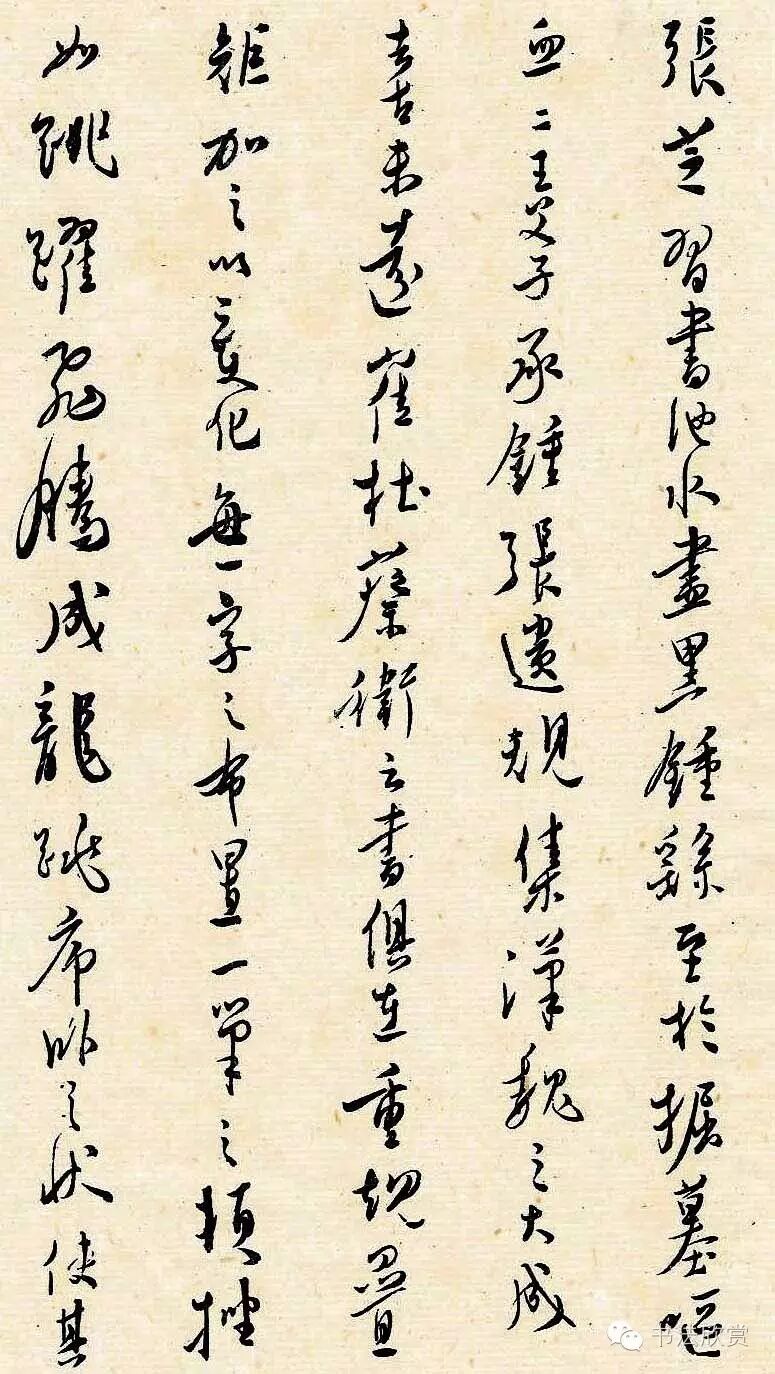 張芝習書池水盡黑鍾繇至於掘墓嘔
血二王父子承鍾張遺規集漢魏之大成
去古未遠崔杜蔡衛之書俱在重規疊
矩加之以變化每一字之布置一筆之頓挫
如跳躍飛騰成龍跳虎卧之狀使其
书法欣赏